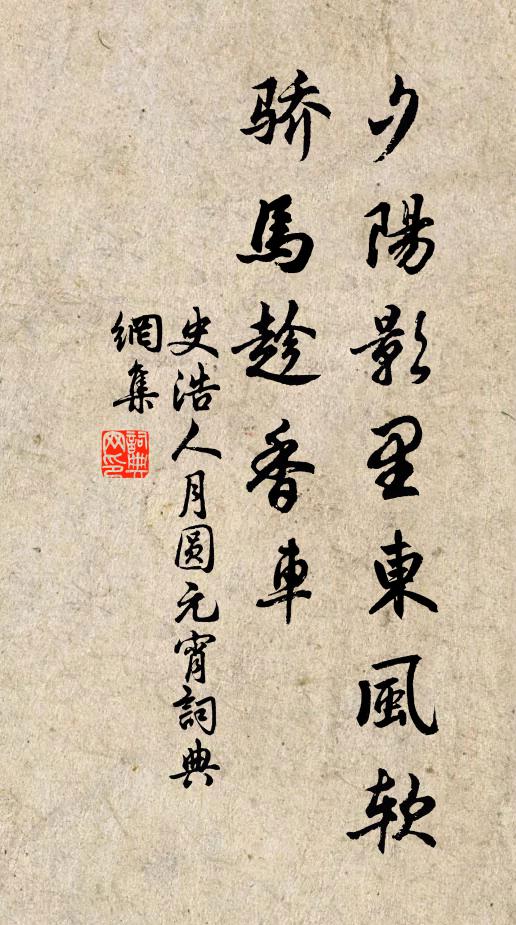 夕陽影里東風软
骄馬趁香車
史浩人月圓元宵詞典
網集
詞典网印